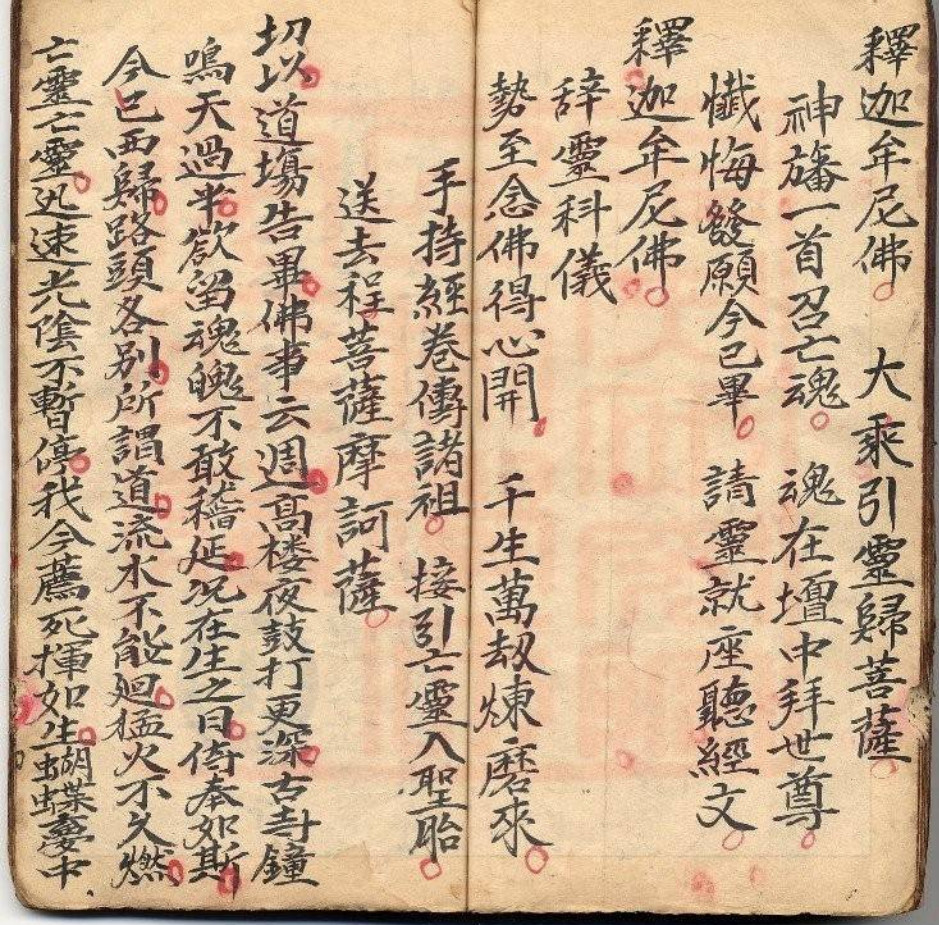 釋迦牟尼佛 大乘引靈歸菩薩
神旛一首召亡魂 魂在壇中拜世尊
懺悔發願今已畢 請靈就座聽經文
釋迦牟尼佛
辞靈科儀
勢至念佛得心開 千生萬劫煉磨來
手持經卷傳諸祖 接引亡靈入聖胎
送去程菩薩摩訶薩
切以道場告畢佛事云週高楼夜鼓打更深古寺鐘
鳴天過半欲留魂魄不敢稽延况在生之日侍奉如斯
今已西歸路頭各別所謂道流水不能廻猛火不久燃
亡靈亡靈迅速光陰不暫停我今薦死揮如生蝴蝶夢中